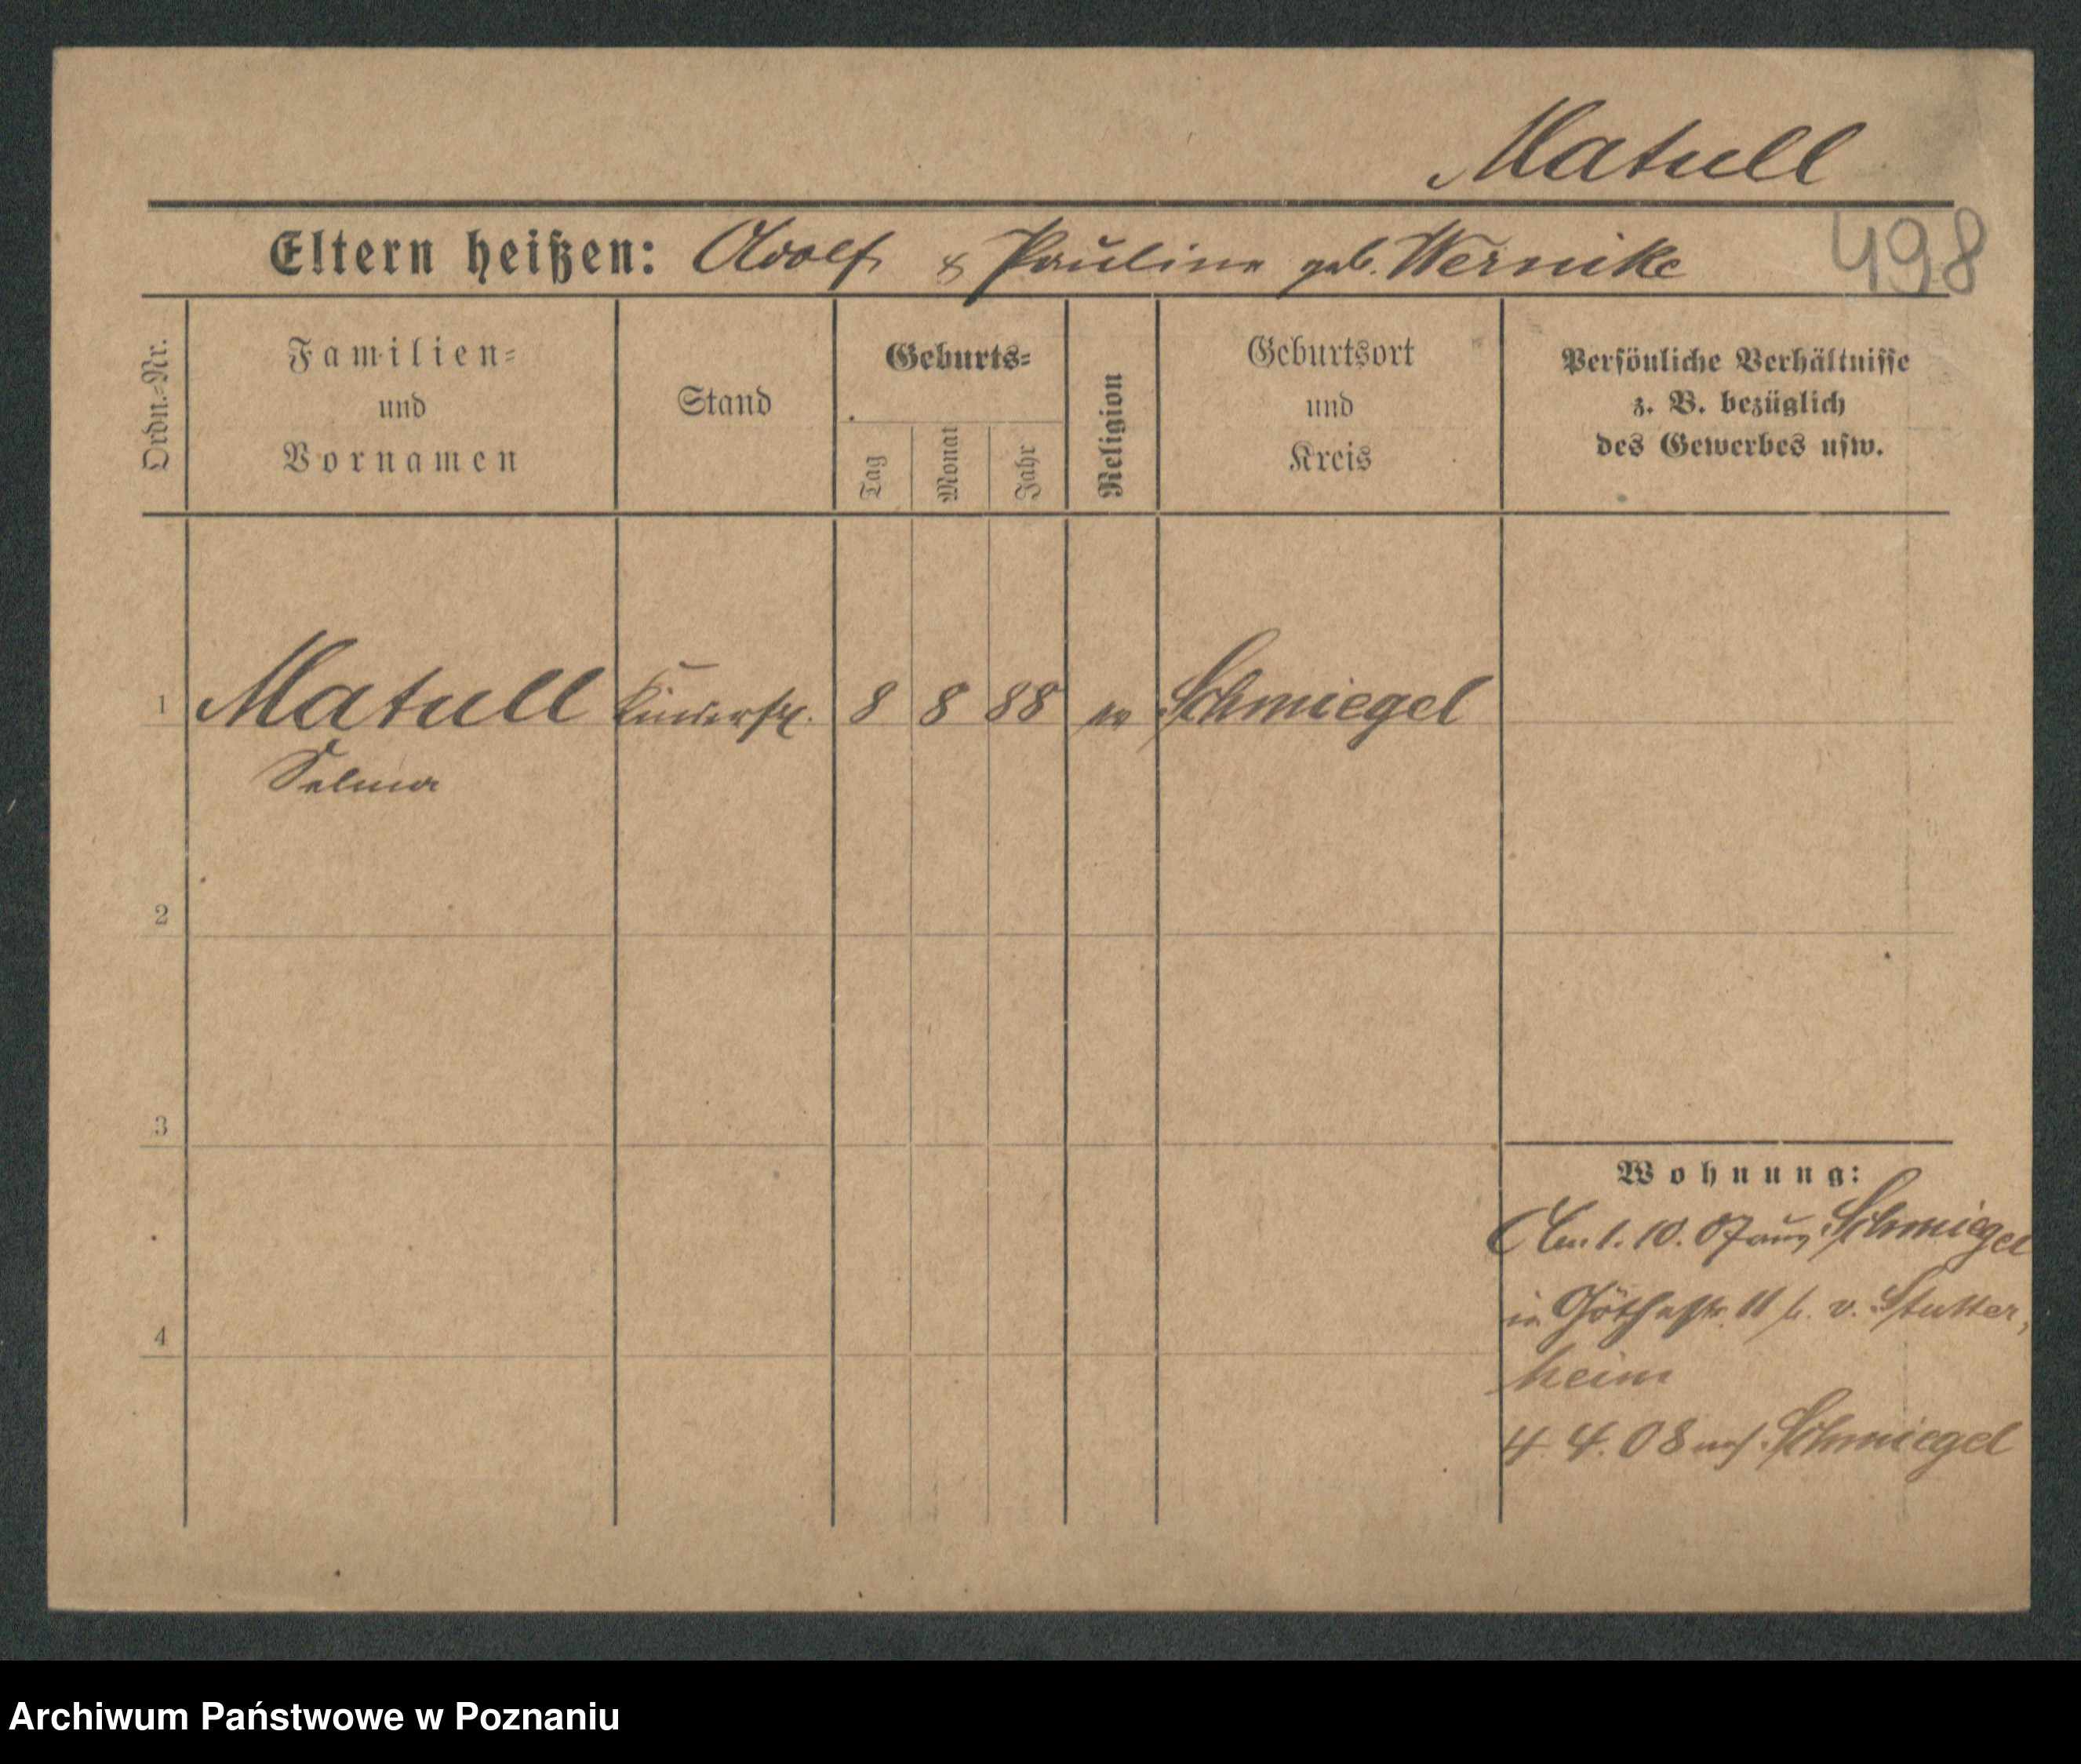 Matull
Eltern heißen: Adolf & Pauline geb. Wernike
498
Ordn.-Nr.
Familien-
und
Vornamen
Stand
Geburts-
Tag
Monat
Jahr
Religion
Geburtsort
und
Kreis
Persönliche Verhältnisse
z. B. bezüglich
des Gewerbes usw.
1 Matull Kinderfrl. 8 8 88 ev Schmiegel
Selma
2
3
4
Wohnung:
Am 1. 10. 07 aus Schmiegel
in Göthestr. 11 b. v. Stutter,
heim
4. 4. 08 nach Schmiegel
Archiwum Państwowe w Poznaniu